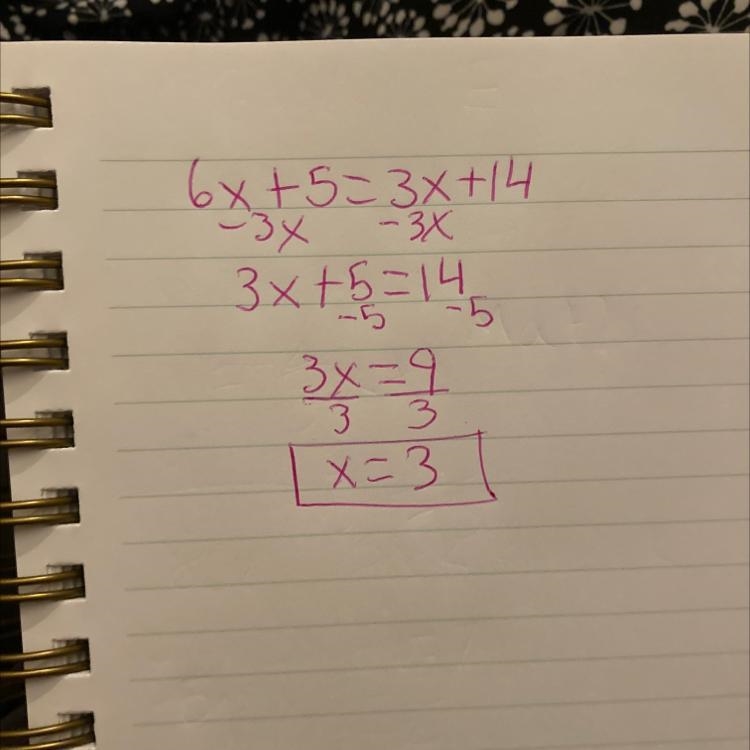 6x+5=3x+14
-3x -3x
3x+5=14
-5 -5
3x=9
3 3
x=3